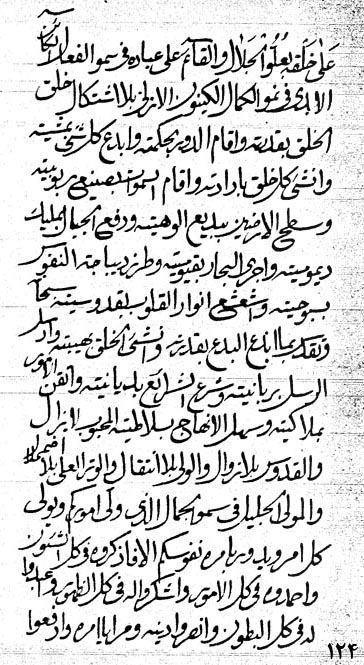 على خلقه بعلو الجلال والقائم على عباده في سمو الفعال الكائن
الابدي في نمو الكمال الكينون الازل بلا اشتكال خلق
الخلق بقدرته واقام الدور بحكمته وابدع كل شيء بمشيته
وانشئ كل خلق بارادته واقام السموات بصنيع ربوبيته
وسطح الارضين ببديع الوهيته ورفع الجبال بمليك
ديموميته واجرى البحار بقيوميته وطرز ديباجة النفوس
بسبوحيته واشعشع انوار القلوب بقدوسيته
وتقدر بما ابدع البدع بقدرته وانشئ الخلق بهيبته وارسل
الرسل بربانيته وشرع الشرائع بديانيته واتقن الامور
بملاكيته وسهل الانهاج بسلاطيته المحبوب ابزال
والقدوس بلا زوال والولي بلا انتقال والوتر العلي بلا اضمحلال
والمولى الجليل في سمو الجمال الذي ولى اموركم ويولى
كل امر وبامره نفوسكم الا فاذكروه في كل الشئون
واحمدوه في كل الامور واشكروا له في كل الظهور واعبدوا
له في كل البطون وانصروا دينه ومرايا امره وادفعوا
١٢٤